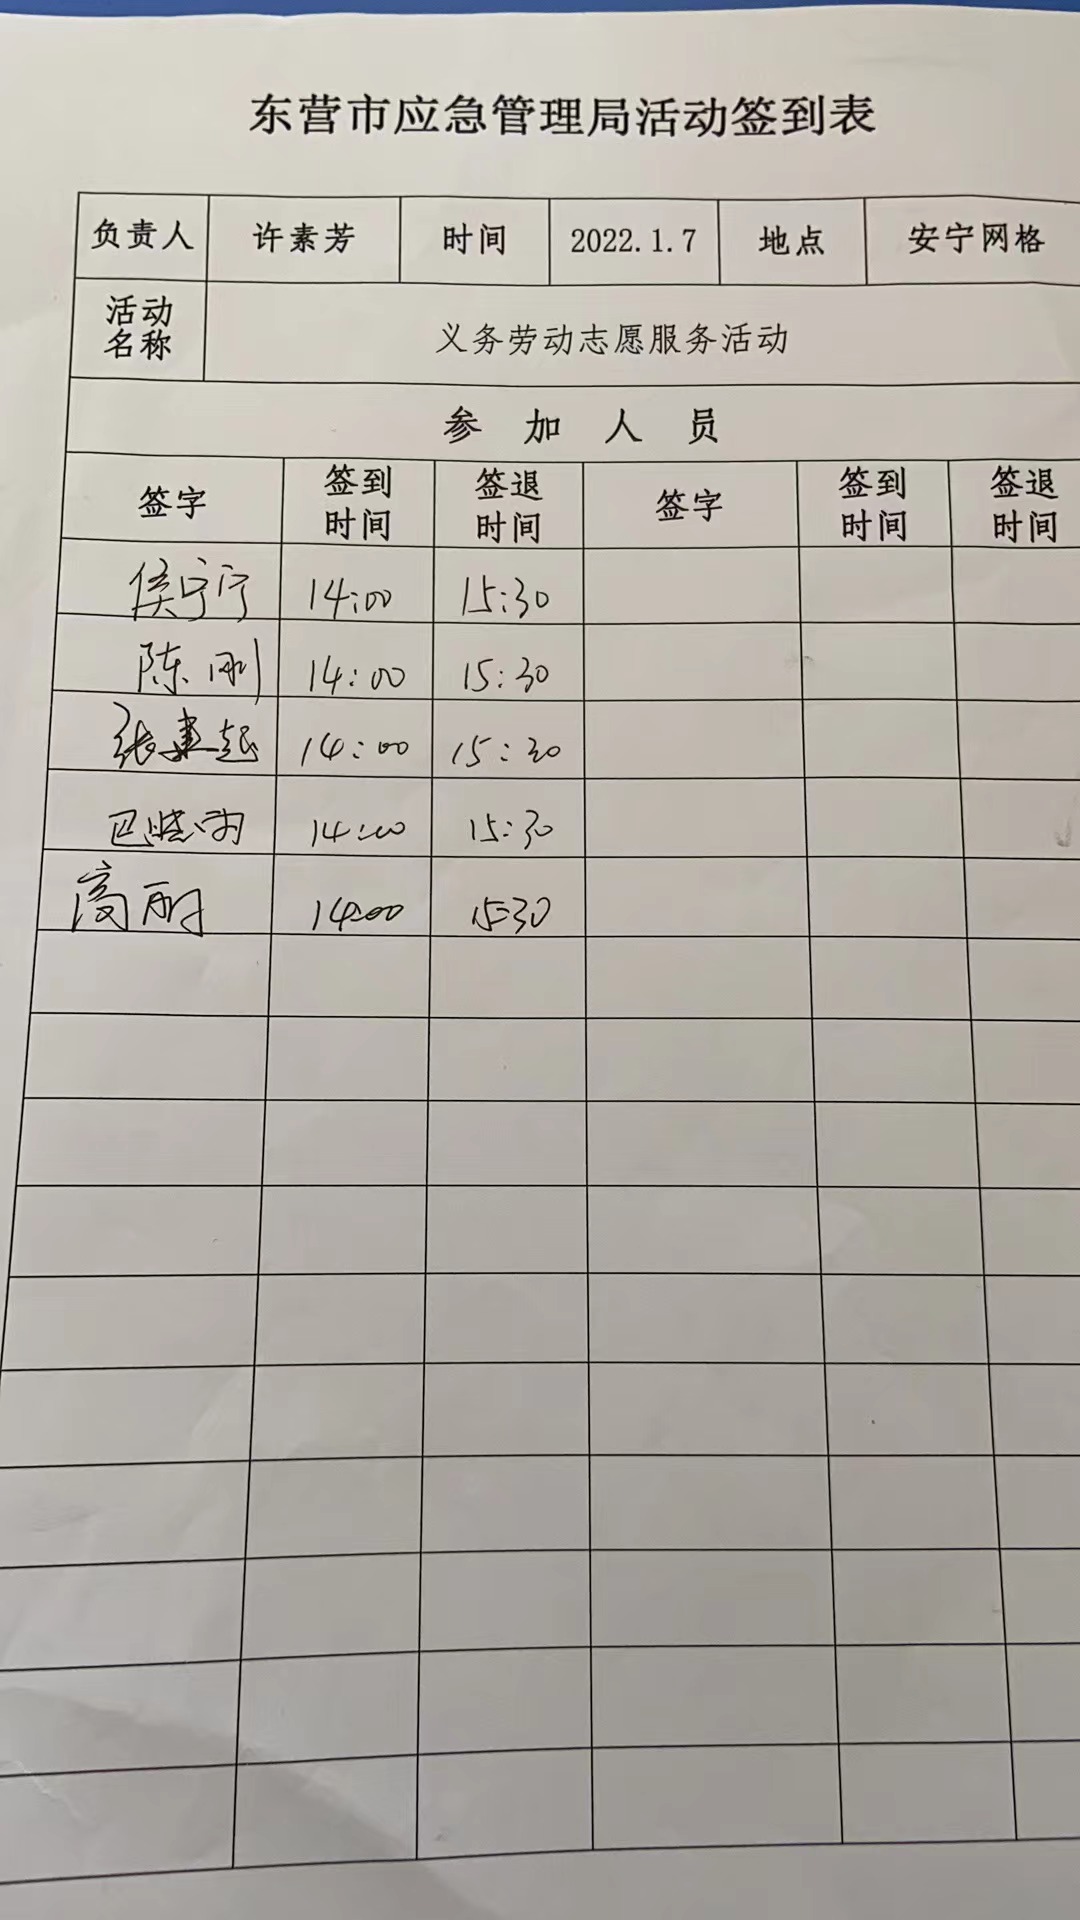 东营市应急管理局活动签到表
负责人 许素芳 时间 2022.1.7 地点 安宁网格
活动名称 义务劳动志愿服务活动
参加人员
签字 签到时间 签退时间 签字 签到时间 签退时间
侯宁宁 14:00 15:30
陈刚 14:00 15:30
张建起 14:00 15:30
巴晓雨 14:00 15:30
高丽 14:00 15:30